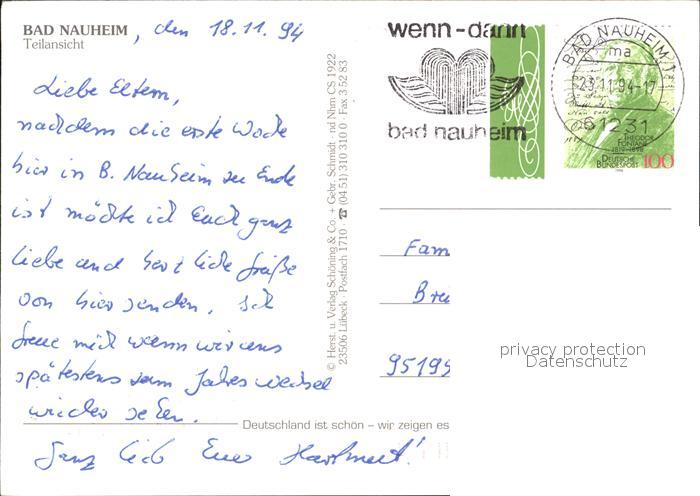 BAD NAUHEIM, den 18.11.94
Teilansicht
Liebe Eltern,
nachdem die erste Woche
hier in B. Nauheim zu Ende
ist möchte ich Euch ganz
liebe und herzliche Grüße
von hier senden. Ich
freue mich wenn wir uns
spätestens zum Jahreswechsel
wieder sehen.
Ganz lieb Euer Hartmut!
Deutschland ist schön – wir zeigen es
© Herst. u. Verlag Schöning & Co. + Gebr. Schmidt · nd Nhm CS 1922
23506 Lübeck · Postfach 1710 · ☎ (04 51) 310 310 0 · Fax 3 52 83
wenn-dann
bad nauheim
BAD NAUHEIM 1
ma
23.11.94-17
61231
THEODOR
FONTANE
1819-1898
DEUTSCHE
BUNDESPOST 100
1994
Fam
Brei
95195
privacy protection
Datenschutz